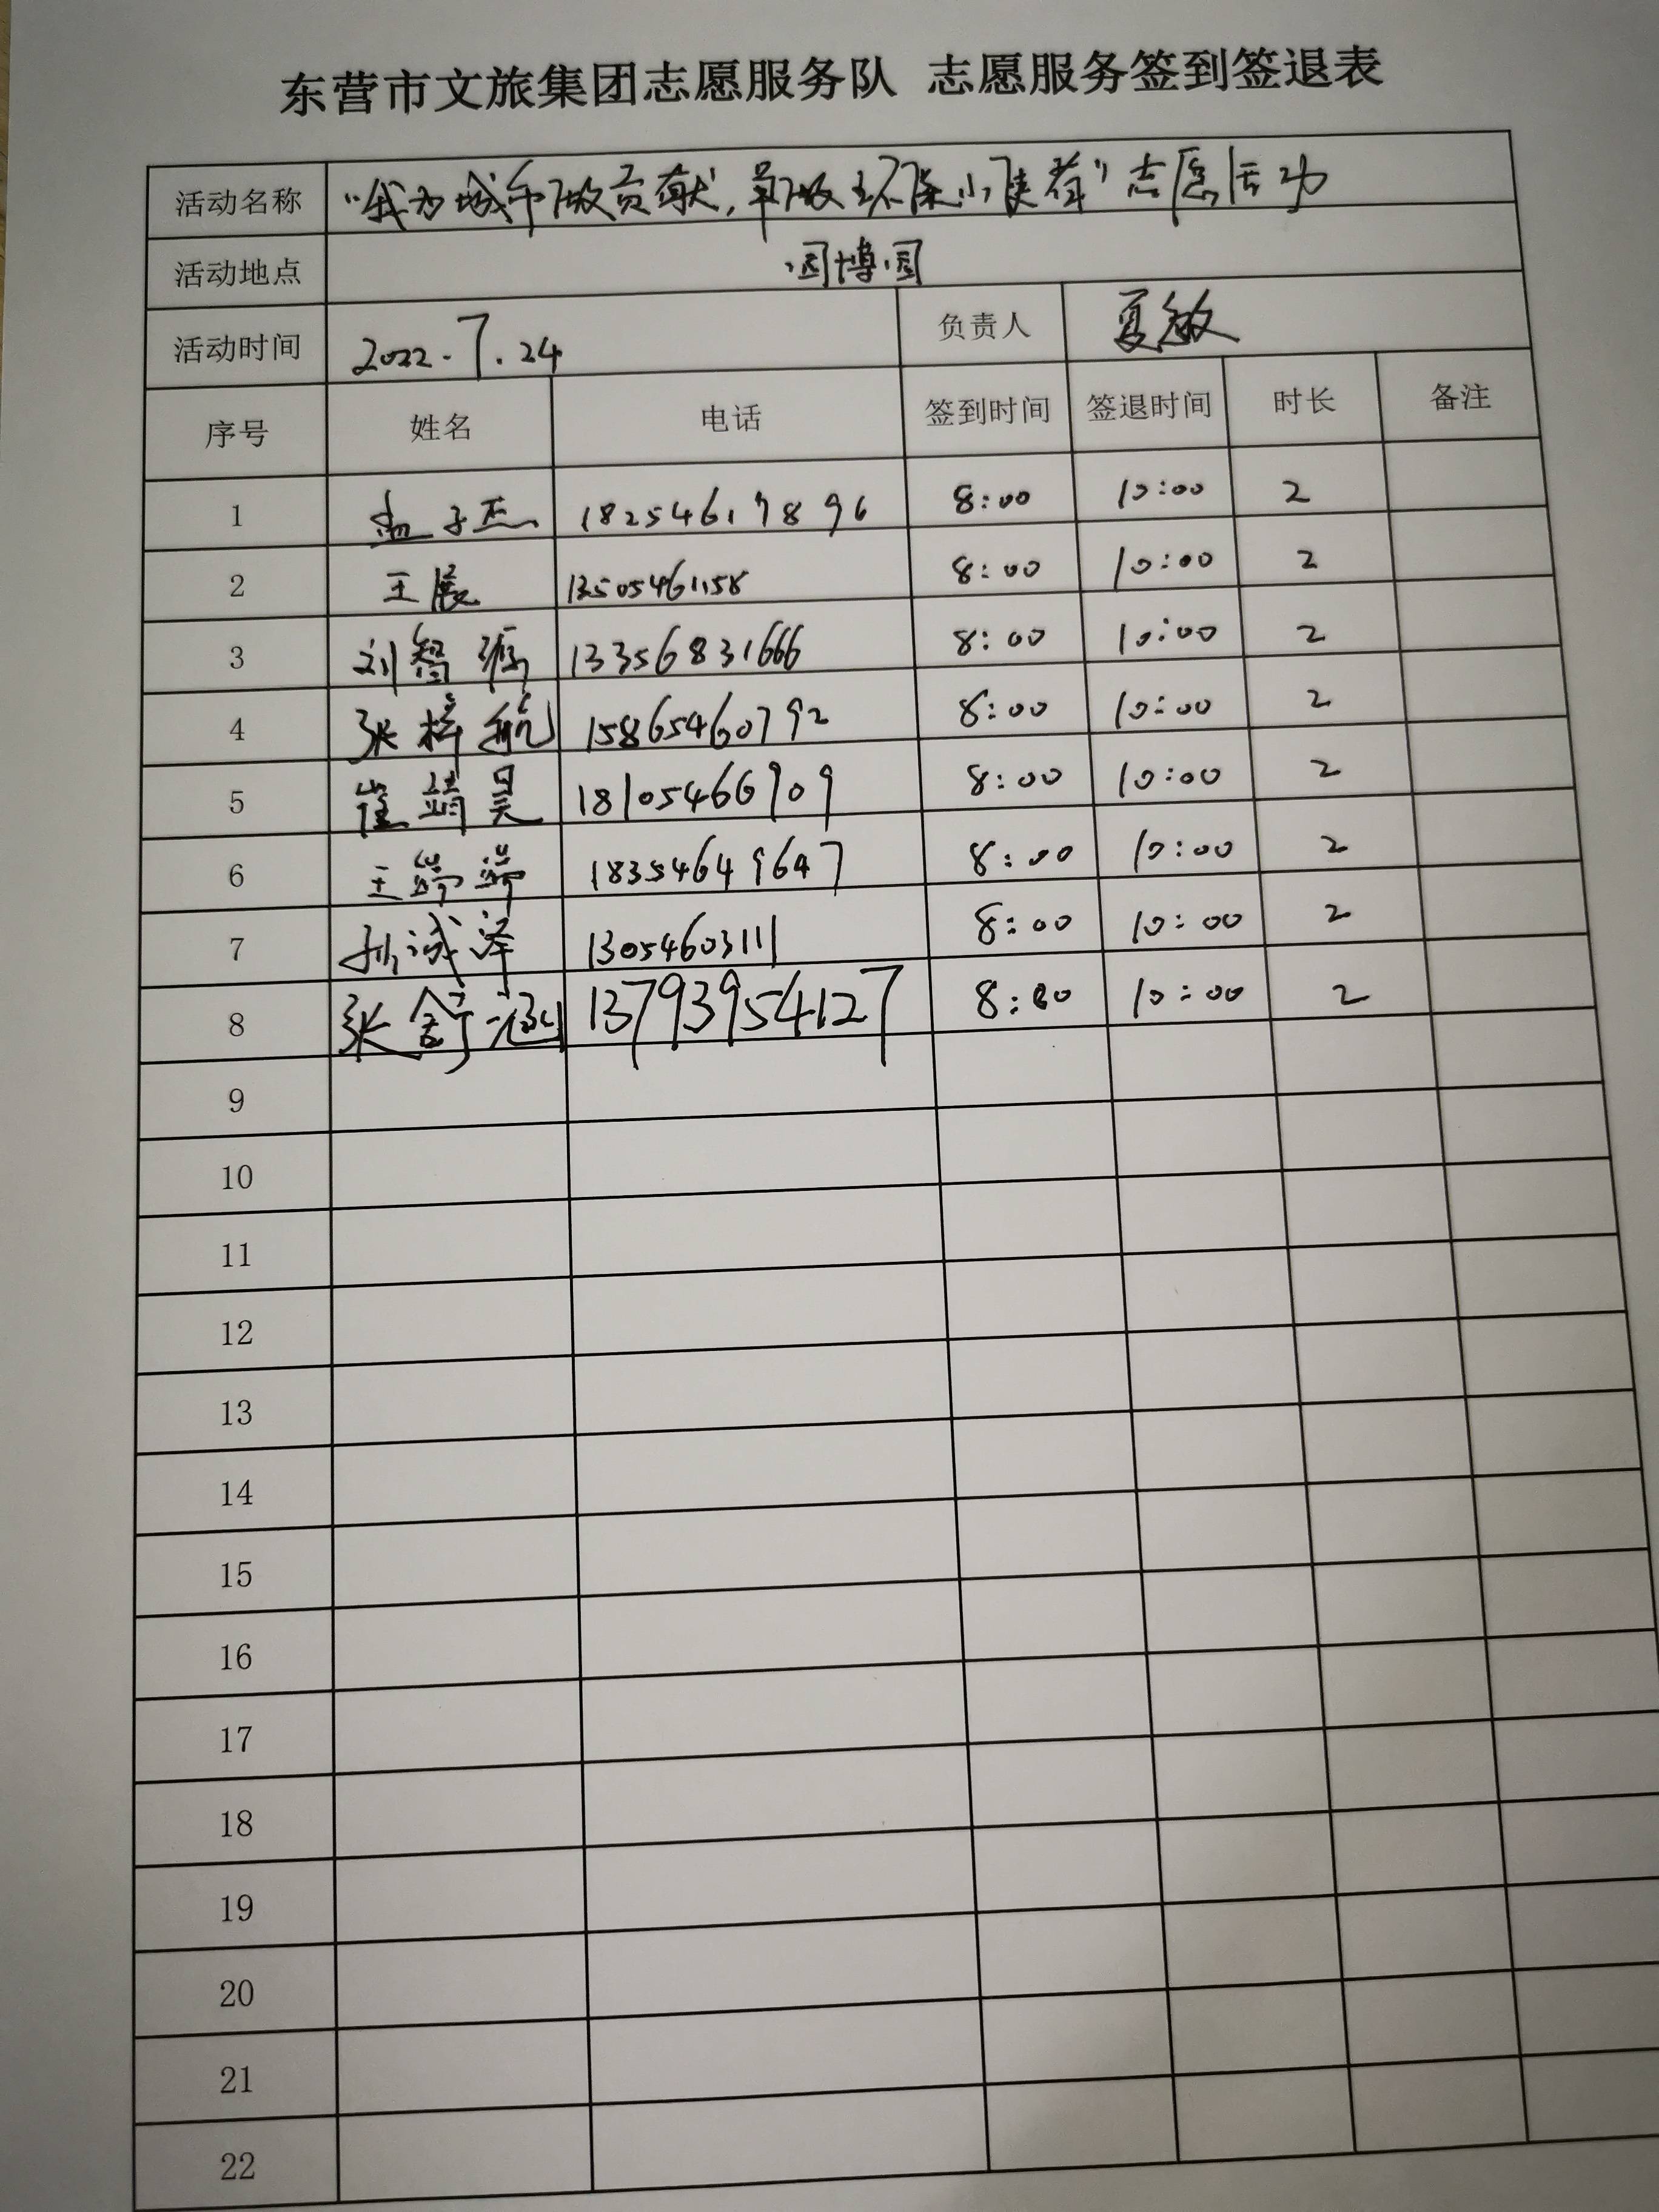 东营市文旅集团志愿服务队 志愿服务签到签退表
活动名称 “我为城市做贡献，争做环保小使者”志愿活动
活动地点 园博园
活动时间 2022.7.24 负责人 夏敏
序号 姓名 电话 签到时间 签退时间 时长 备注
1 孟子杰 18254617896 8:00 10:00 2
2 王展 13505461158 8:00 10:00 2
3 刘智 13356831666 8:00 10:00 2
4 张梓航 15865460792 8:00 10:00 2
5 崔靖昊 18105466909 8:00 10:00 2
6 王端端 18354649647 8:00 10:00 2
7 孙诚泽 13054603111 8:00 10:00 2
8 张舒涵 13793954127 8:00 10:00 2
9
10
11
12
13
14
15
16
17
18
19
20
21
22